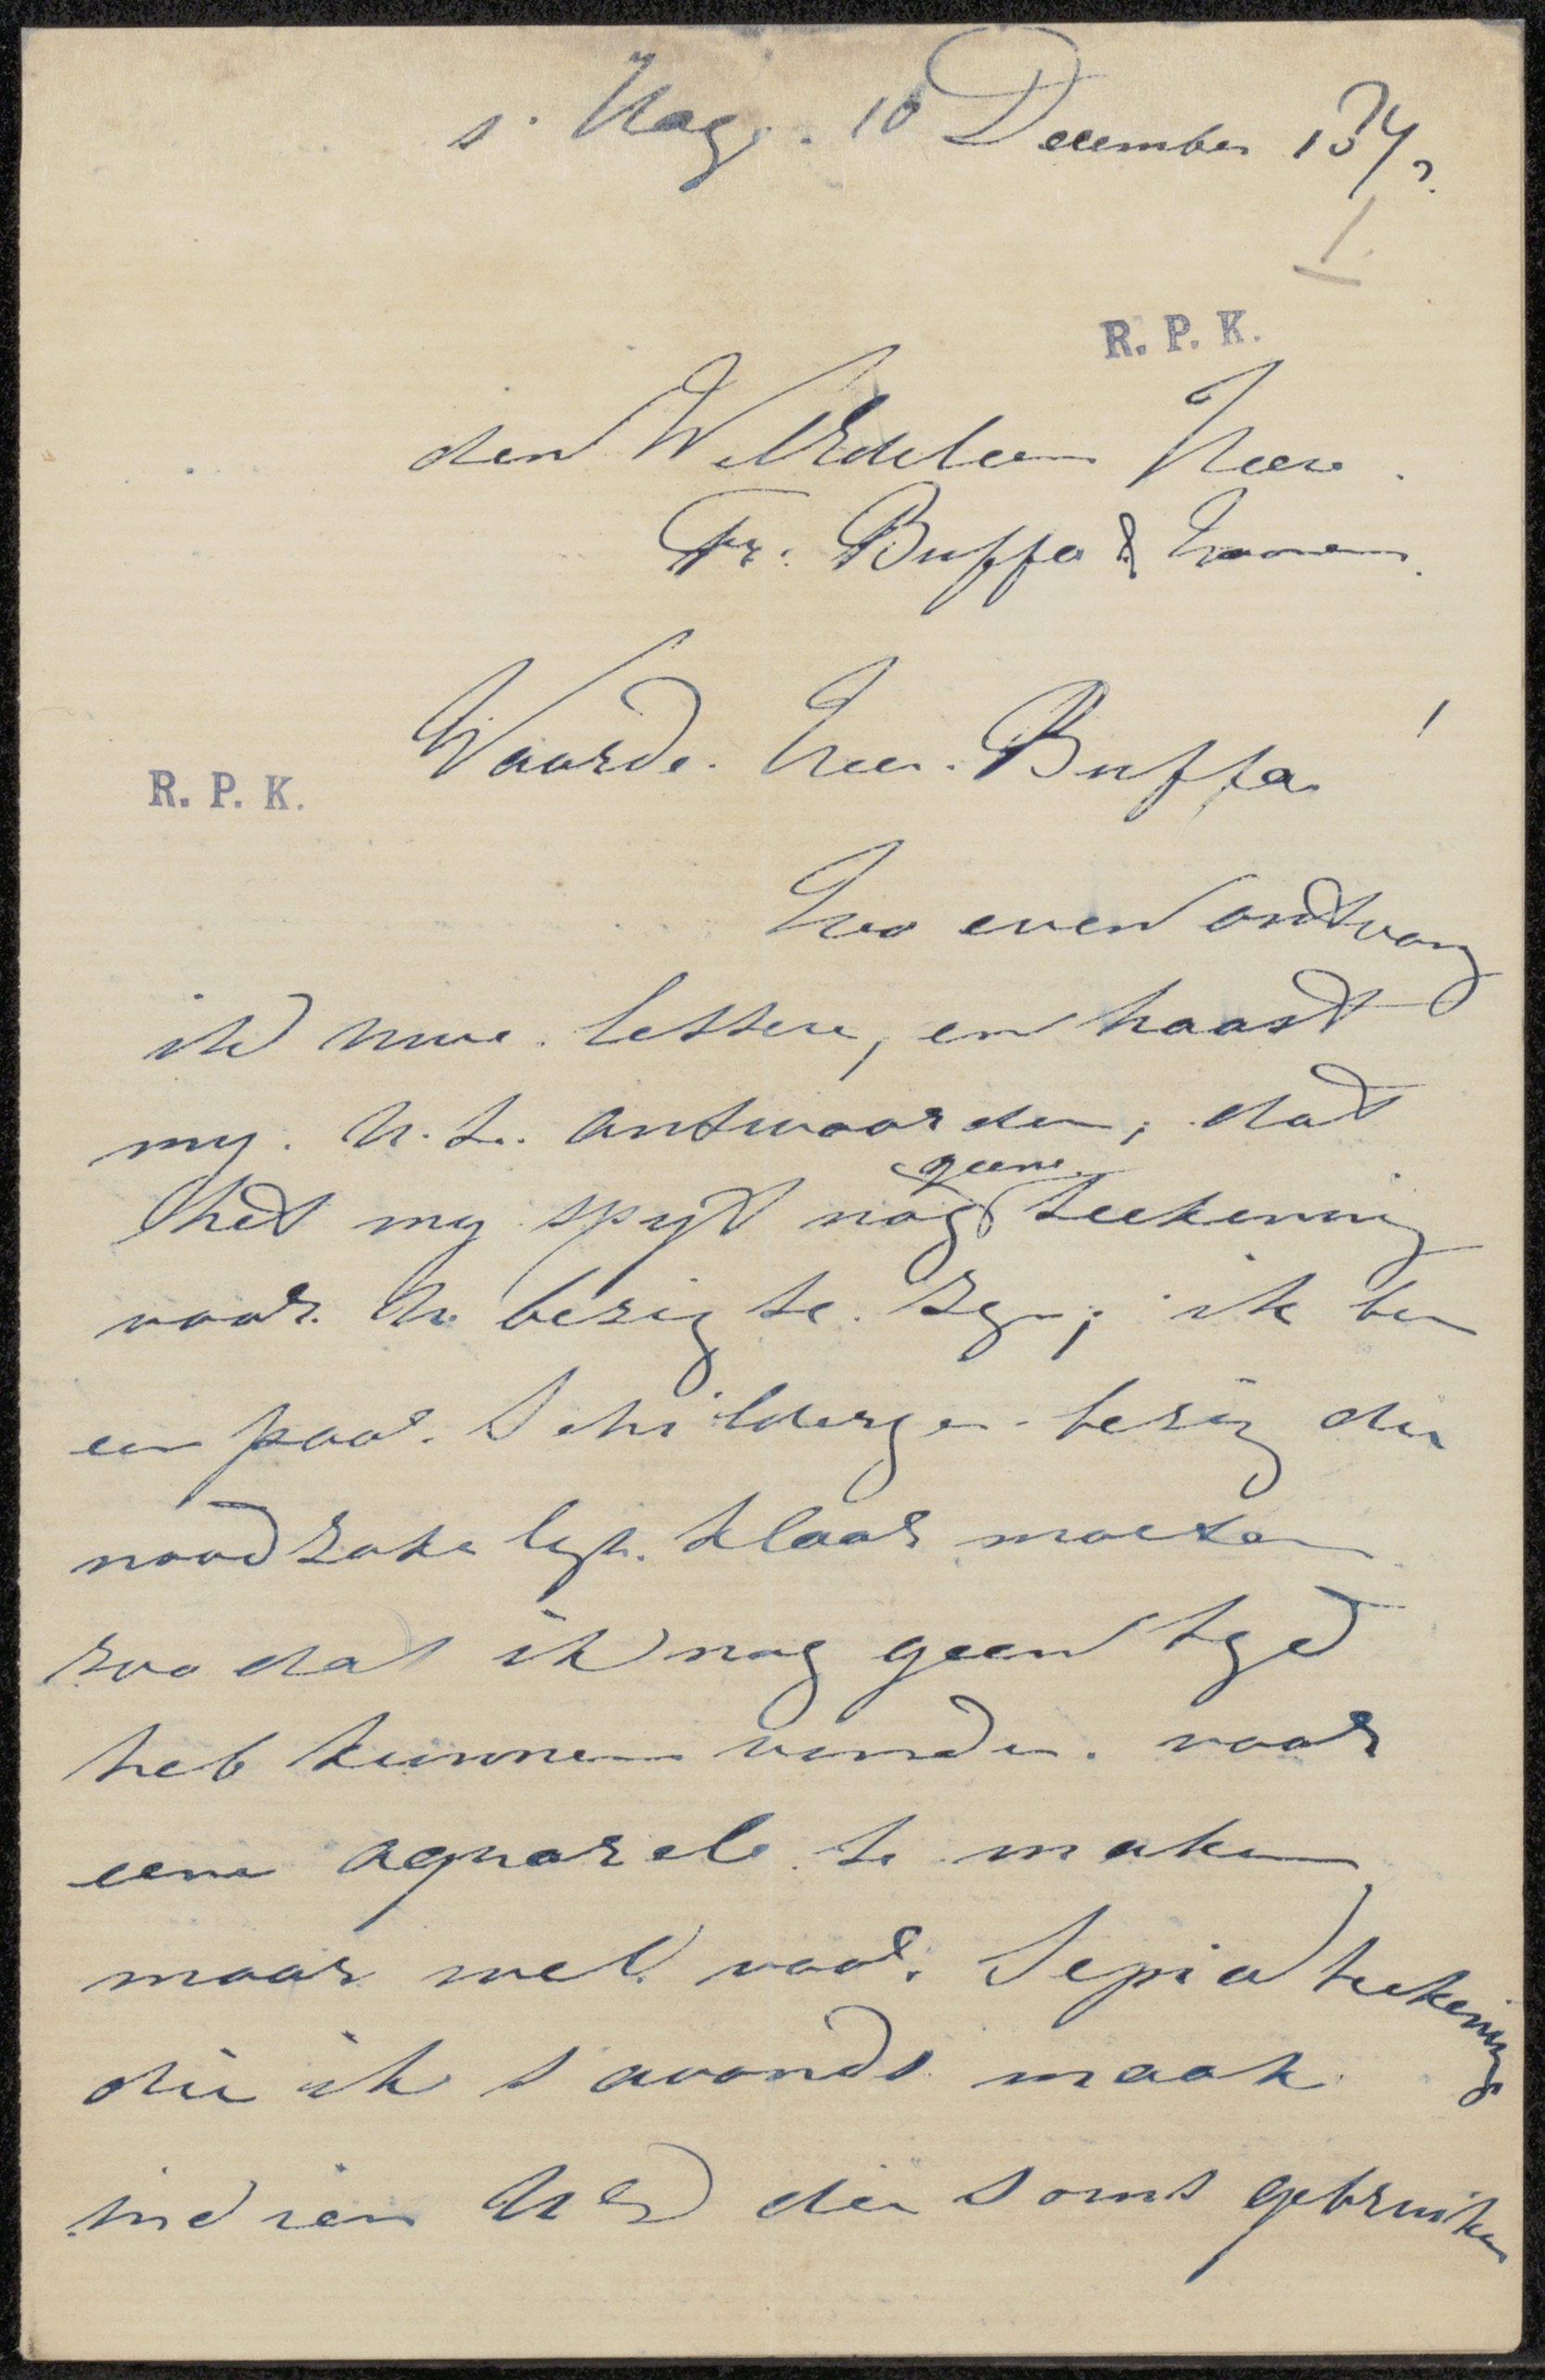 s' Hage. 10 December 187
1
R. P. K.
den WelEdelen Heer
Fr. Buffa & Zoonen.
Waarde. Heer. Buffa !
R. P. K.
Zoo even ontvang
ik uwe. lettere, en haast
my. U. te. antwoorden, dat
geene
het my spyt nog teekening
voor. U. bezig te. zyn; ik ben
een paar. Schilderyen. bezig die
noodzakelyk. klaar moeten
zoo dat ik nog geen tyd
heb kunnen vinden. voor
eene aquarele te maken
maar wel. voor. Sepia teekening
die ik s avonds maak
indien UEd die soms gebruiken